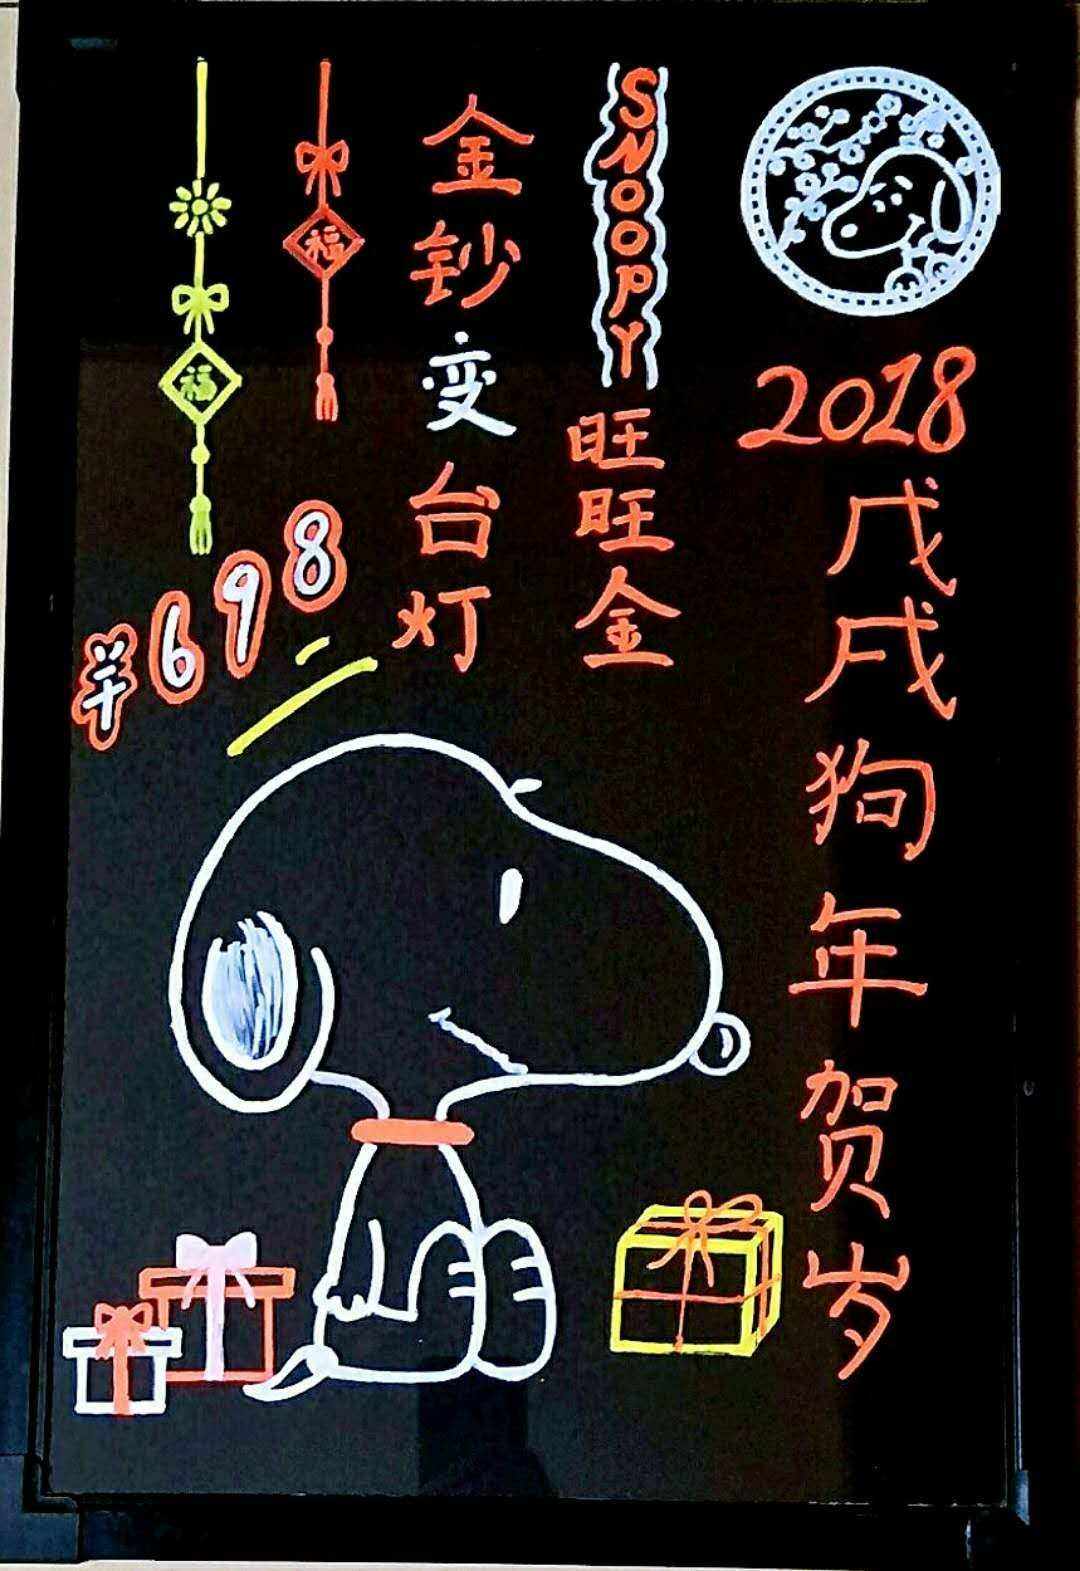 2018
戊戌狗年贺岁
SNOOPY
旺旺金
金钞变台灯
福
福
¥698